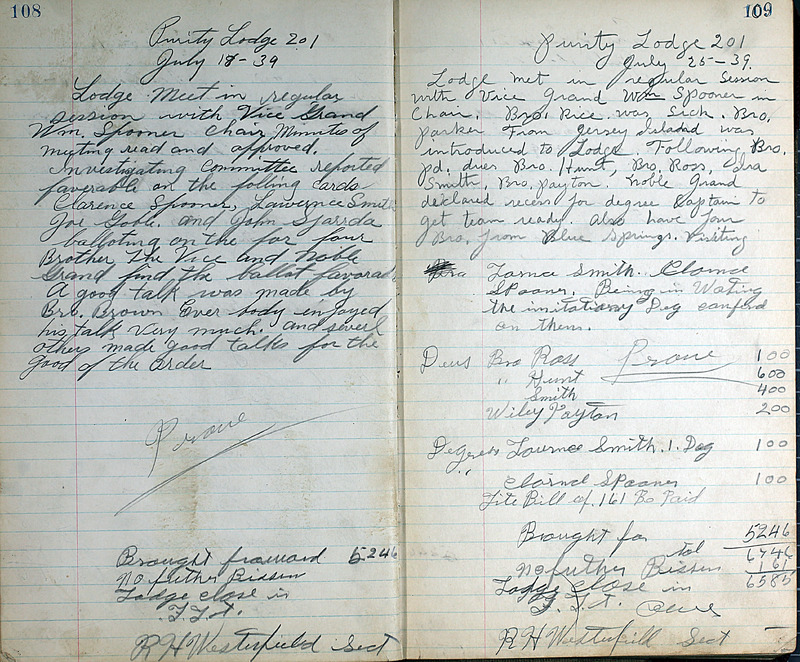 108
Purity Lodge 201
July 18-39
Lodge Meet in regular
session with Vice Grand
Wm. Spooner Chair, Minutes of
meeting read and approved.
investigating Committee reported
favorable on the folling cards
Clarence Spooner, Lawernce Smith
Joe Goble. and John
balloting on the for four
Brother The Vice and Noble
Grand find the ballot favorable
A good talk was made by
Bro. Brown Ever body enjoyed
his talk Very much. and severl
others made good talks for the
good of the order
Prove
Brought forward 5246
no futher Bissin
Lodge close in
F.L.T.
R H Westerfield Sect
109
Purity Lodge 201
July 25-39.
Lodge met in regular Session
with Vice Grand Wm Spooner in
Chair. Bro. Rice was Sick. Bro.
parker From Jersey was
introduced to Lodge. Following Bro.
pd. dues Bro. Hunt, Bro. Ross, Ira
Smith, Bro. payton. Noble Grand
declared recess for degree Captain to
get team ready. also have four
Bro. from Blue Springs. Visiting
Smith. Clornce
Spooner. Being in Wating
the imitationry Deg conferd
on them.
Deus Bro Ross Prove 100
" Hunt 600
Smith 400
Wiley Payton 200
Degrees Lournce Smith. 1. Deg 100
" Clornce Spooner 100
Lite Bill of 161 Be Paid
Brought for 5246
tol 6746
no futher Bissin 161
Lodge close in 6585
F.L.T.
R H Westerfield Sect